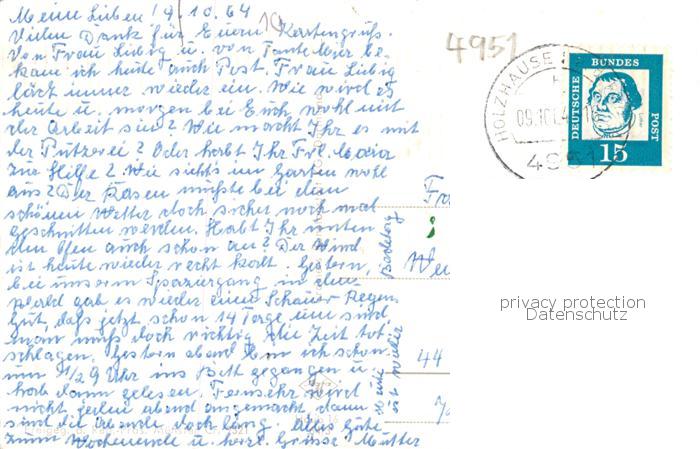 Meine Lieben! 9.10.64
Vielen Dank für Euern Kartengruß.
Von Frau Liebig u. von Tante Meier be-
kam ich heute auch Post. Frau Liebig
läd immer wieder ein. Wie wird es
heute u. morgen bei Euch wohl mit
der Arbeit sein? Wie macht Ihr es mit
der Putzerei? Oder habt Ihr Frl. Maria
zur Hilfe? Wie sieht's im Garten wohl
aus? Der Rasen müßte bei dem
schönen Wetter doch sicher noch mal
geschnitten werden. Habt Ihr unten
den Ofen auch schon an? Der Wind
ist heute wieder recht kalt. Gestern,
bei unserm Spaziergang in den
Wald gab es wieder einen Schauer Regen.
Gut, daß jetzt schon 14 Tage um sind
man muß doch richtig die Zeit tot-
schlagen. Gestern abend bin ich schon
um 1/2 9 Uhr ins Bett gegangen u.
hab dann gelesen. Fernsehr wird
nicht jeden abend angemacht, dann
sind die Abende doch lang. Alles Gute
zum Wochenende u. herzl. Grüsse Mutter
10
4951
HOLZHAUSE
09.10.
4951
DEUTSCHE
BUNDES
POST
15
Fr
We
44
privacy protection
Datenschutz